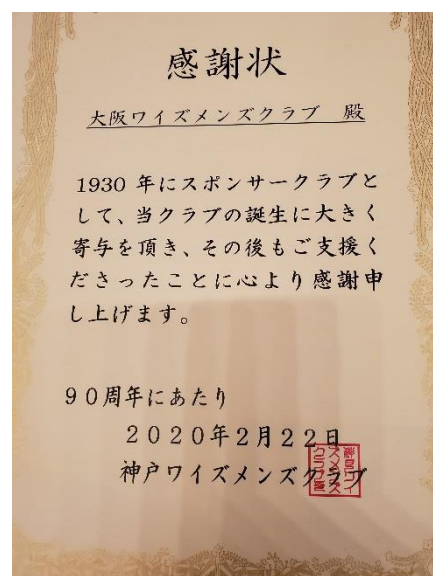 感謝状
大阪ワイズメンズクラブ　殿
1930 年にスポンサークラブと
して、当クラブの誕生に大きく
寄与を頂き、その後もご支援く
ださったことに心より感謝申
し上げます。
９０周年にあたり
２０２０年２月２２日
神戸ワイズメンズクラブ